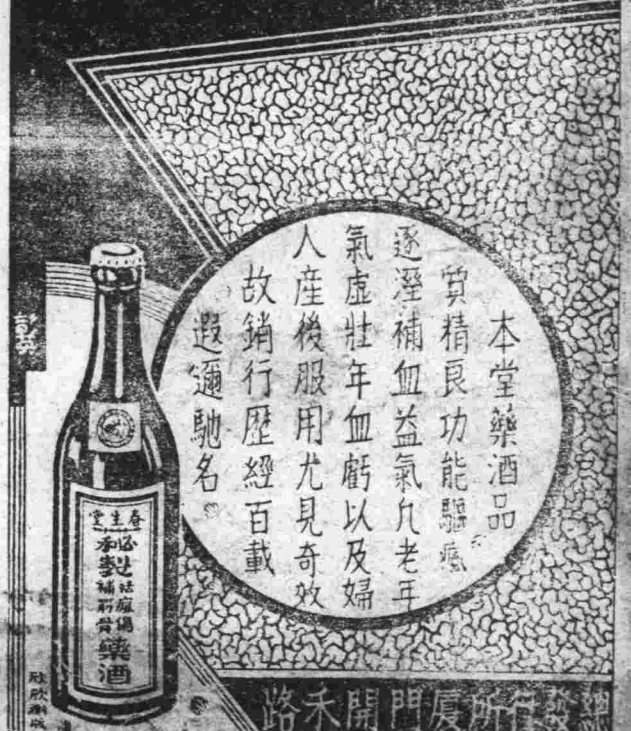 本堂藥酒品
質精良功能驅瘋
逐溼補血益氣凢老年
氣虛壯年血虧以及婦
人產後服用尤見奇效
故銷行歷經百載
遐邇馳名
春生堂
祛風傷
補筋骨
藥酒
總發行所厦門開禾路